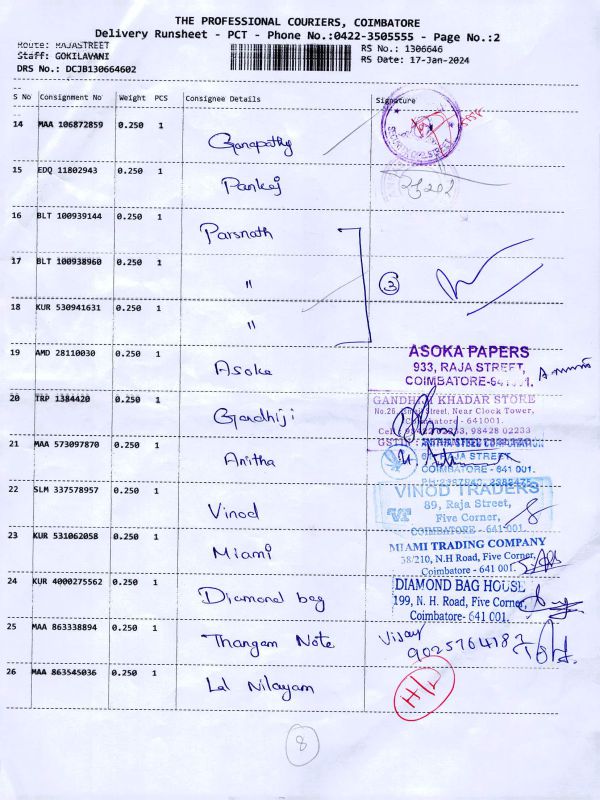 THE PROFESSIONAL COURIERS, COIMBATORE
Delivery Runsheet - PCT - Phone No.:0422-3505555 - Page No.:2
Route: RAJASTREET
Staff: GOKILAVANI
DRS No.: DCJB130664602
RS No.: 1306646
RS Date: 17-Jan-2024
S No Consignment No Weight PCS Consignee Details Signature
14 MAA 106872859 0.250 1 Ganapathy
15 EDQ 11802943 0.250 1 Pankaj
16 BLT 100939144 0.250 1 Parsnath
17 BLT 100938960 0.250 1 " 3
18 KUR 530941631 0.250 1 "
19 AMD 28110030 0.250 1 Asoka
ASOKA PAPERS
933, RAJA STREET,
COIMBATORE-641001.
20 TRP 1384420 0.250 1 Gandhiji
GANDHIJI KHADAR STORE
Street, Near Clock Tower,
Coimbatore - 641001.
98428 02233
21 MAA 573097870 0.250 1 Anitha
RAJA STREET
COIMBATORE - 641 001.
22 SLM 337578957 0.250 1 Vinod
VINOD TRADERS
89, Raja Street,
Five Corner,
COIMBATORE - 641 001
23 KUR 531062058 0.250 1 Miami
MIAMI TRADING COMPANY
58/210, N.H Road, Five Corner,
Coimbatore - 641 001.
24 KUR 4000275562 0.250 1 Diamond bag
DIAMOND BAG HOUSE
199, N. H. Road, Five Corner,
Coimbatore- 641 001.
25 MAA 863338894 0.250 1 Thangam Note Vijay
9025764187
26 MAA 863545036 0.250 1 Lal Nilayam
8